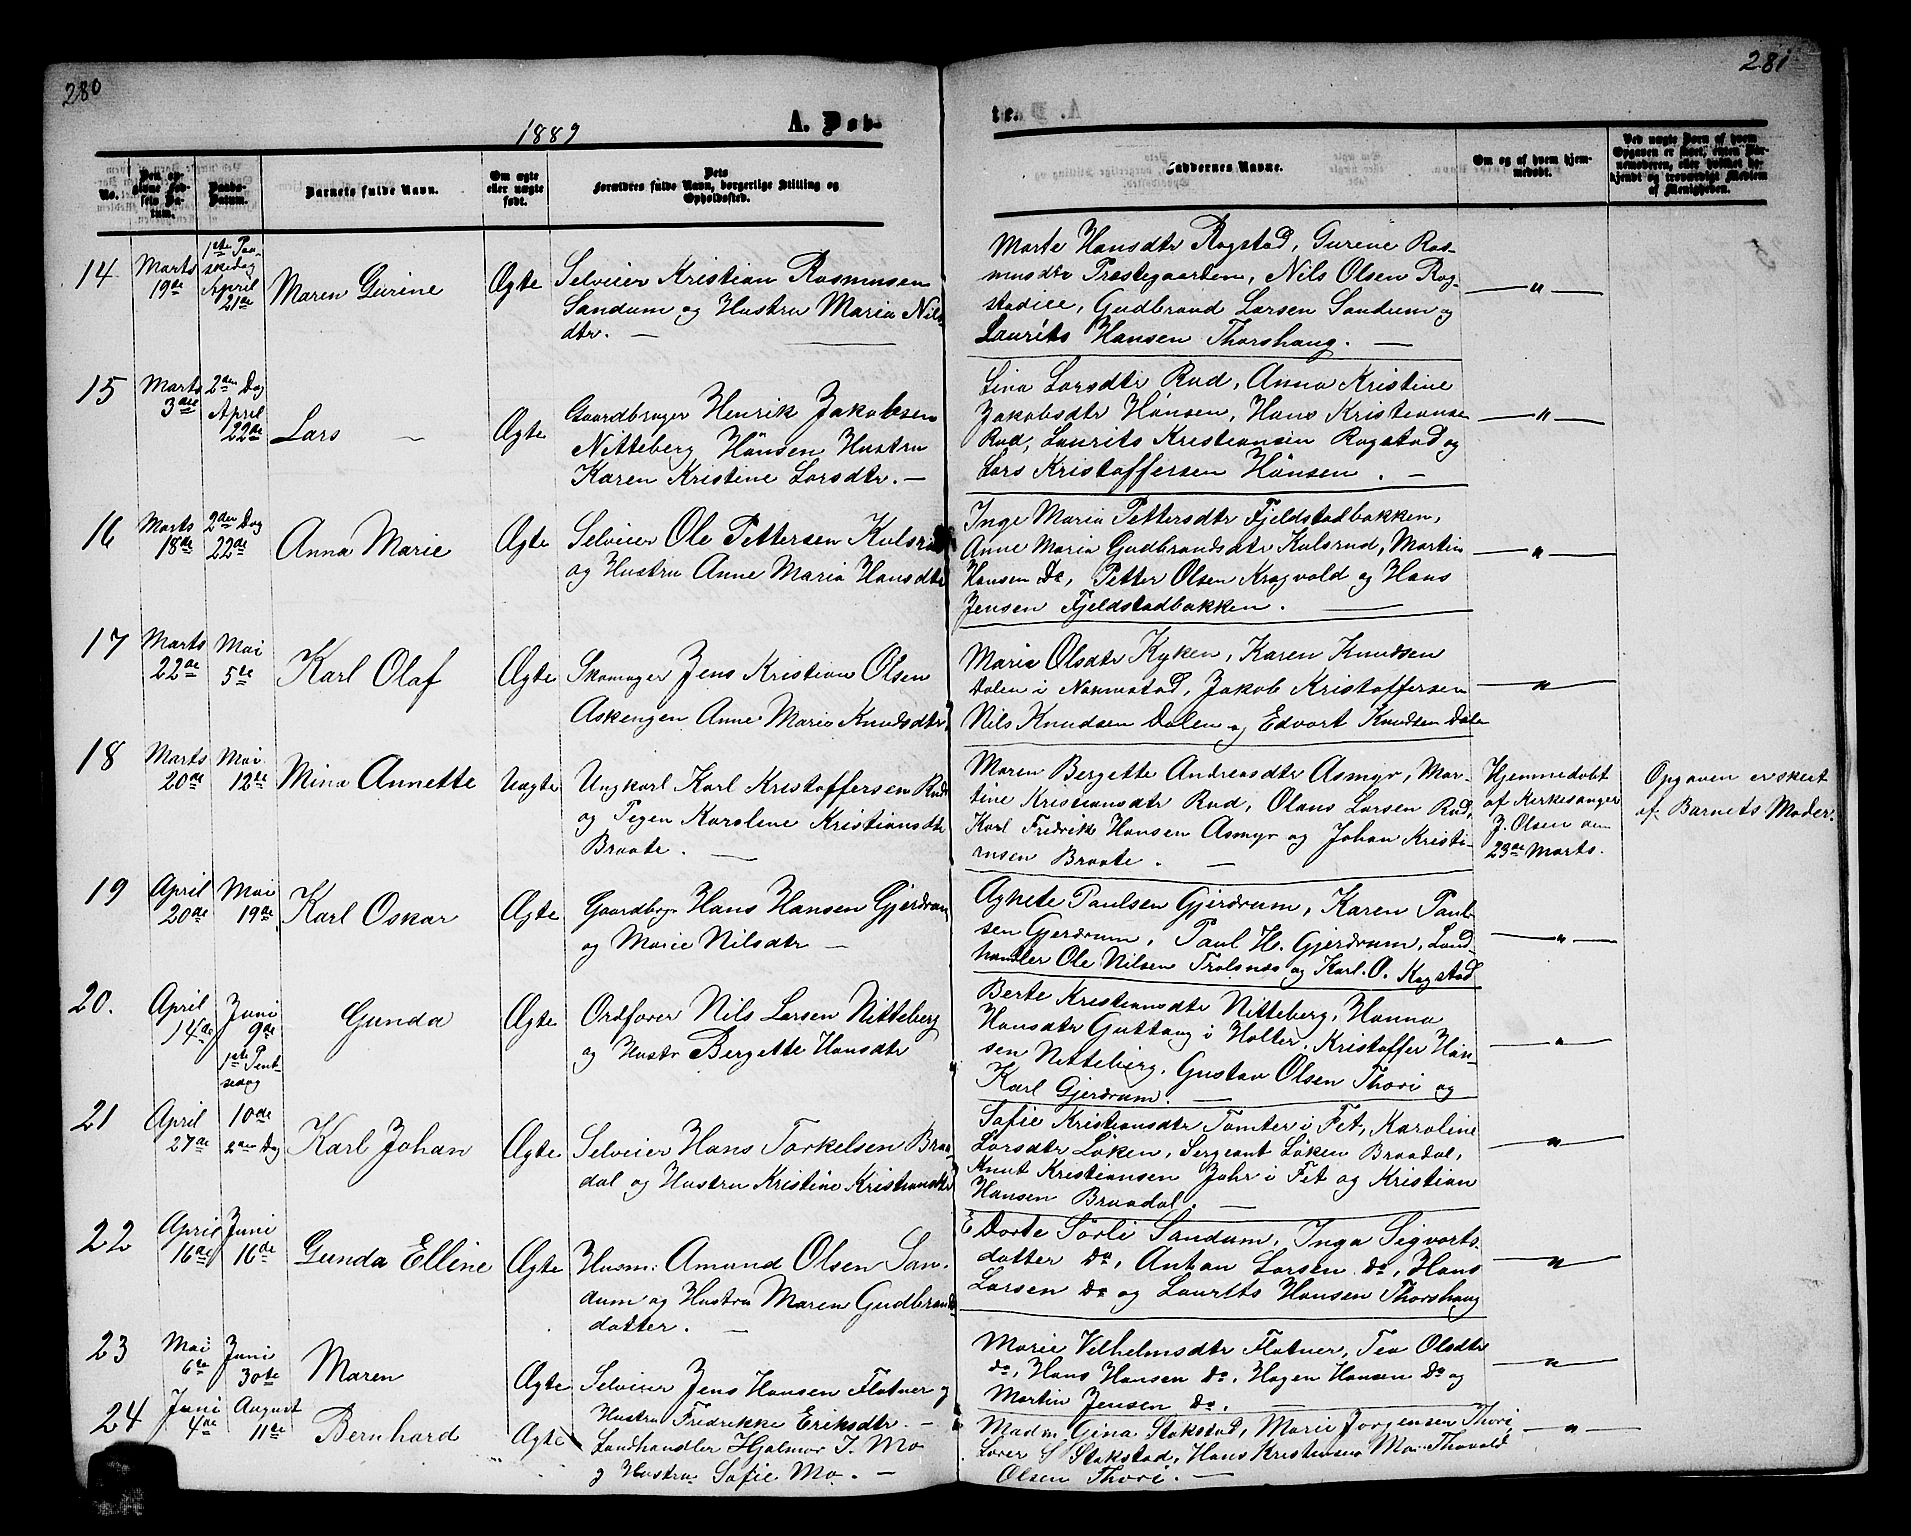 280
281
1889
A. Døb-
te.
No.
Barnets fulde Navn.
Om ægte
eller uægte
født.
Forældres fulde Navn, borgerlige Stilling og
Opholdssted.
Faddernes Navne.
Om og af hvem hjem-
medøbt.
14
Marts
19de
1ste Paa-
skedag
April
21de
Maren Gurine
Ægte
Selveier Kristian Rasmusen
Sandum og Hustru Maria Nils-
dtr. —
Marte Hansdtr Ragstad, Gurine Ras-
musdtr Præstegaarden, Nils Olsen Rag-
stadeie, Gudbrand Larsen Sandum og
Laurits Hansen Thorshaug. —
— " —
15
Marts
3die
2den Dag
April
22de
Lars —
Ægte
Gaardbruger Henrik Jakobsen
Nitteberg Hönsen Hustru
Karen Kristine Larsdtr. —
Lina Larsdtr Rud, Anna Kristine
Jakobsdtr Hönsen, Hans Kristianse
Rud, Laurits Kristiansen Ragstad og
Lars Kristoffersen Hönsen. —
— " —
16
Marts
18de
2den Dag
22de
Anna Marie
Ægte
Selveier Ole Pettersen Kulsrud
og Hustru Anne Maria Hansdtr
Inge Maria Pettersdtr Fjeldstadbakken,
Anne Maria Gudbrandsdtr Kulsrud, Martin
Hansen Do, Petter Olsen Kragvold og Hans
Jensen Fjeldstadbakken. —
— " —
17
Marts
22de
Mai
5te
Karl Olaf
Ægte
Skomager Jens Kristian Olsen
Askengen Anne Maria Knudsdtr
Maria Olsdtr Kyken, Karen Knudsen
Dalen i Nannestad, Jakob Kristoffersen
Nils Knudsen Dalen og Edvart Knudsen Dalen
— " —
18
Marts
20de
Mai
12te
Mina Annette
Uægte
Ungkarl Karl Kristoffersen Rud
og Pigen Karoline Kristiansdtr
Braate. —
Maren Bergette Andreasdtr Asmyr, Mar-
tine Kristiansdtr Rud, Olaus Larsen Rud,
Karl Fredrik Hansen Asmyr og Johan Kristi-
ansen Braate. —
Hjemmedøbt
af Kirkesanger
J. Olsen den
23de Marts.
Opgaven er skeet
af Barnets Moder.
19
April
20de
Mai
19de
Karl Oskar
Ægte
Gaardbgr Hans Hansen Gjerdrum
og Marie Nilsdtr —
Agnete Paulsen Gjerdrum, Karen Paul-
sen Gjerdrum, Paul H. Gjerdrum, Land-
handler Ole Nilsen Trolsnæs og Karl. O. Ragstad
— " —
20.
April
14de
Juni
9de
1ste Pint-
sedag
Gunda
Ægte
Ordfører Nils Larsen Nitteberg
og Hustr Bergette Hansdtr
Berte Kristiansdtr Nitteberg, Hanna
Hansdtr Guttaug i Holter, Kristoffer Han-
sen Nitteberg, Gustav Olsen Thori og
Karl Gjerdrum. —
— " —
21
April
27de
10de
2den Dag
Karl Johan
Ægte
Selveier Hans Torkelsen Braa-
dal og Hustru Kristine Kristiansdtr
Sofie Kristiansdtr Tomter i Fet, Karoline
Larsdtr Löken, Sergeant Löken Braadal,
Knut Kristiansen Jahr i Fet og Kristian
Hansen Braadal. —
— " —
22
April
16de
Juni
16de
Gunda Elline
Ægte
Husm: Amund Olsen San-
dum og Hustru Maren Gudbrands
datter. —
E Dorte Sörli Sandum, Inga Sigvorts-
datter do, Anton Larsen do, Hans
Larsen do og Laurits Hansen Thorshaug
— " —
23
Mai
6te
Juni
30te
Maren
Ægte
Selveier Jens Hansen Flatner og
Hustru Fredrikke Eriksdtr. —
Marie Vilhelmsdtr Flatner, Tea Olsdtr
do, Hans Hansen do, Hagen Hansen do og
Martin Jensen do. —
— " —
24
Juni
4de
August
11te
Bernhard
Ægte
Landhandler Hjalmar J. Mo
og Hustru Sofie Mo. —
Madm Gina Stakstad, Marie Jorgensen Thori
Lærer S Stakstad, Hans Kristensen Mo Thovald
Olsen Thori. —
— " —